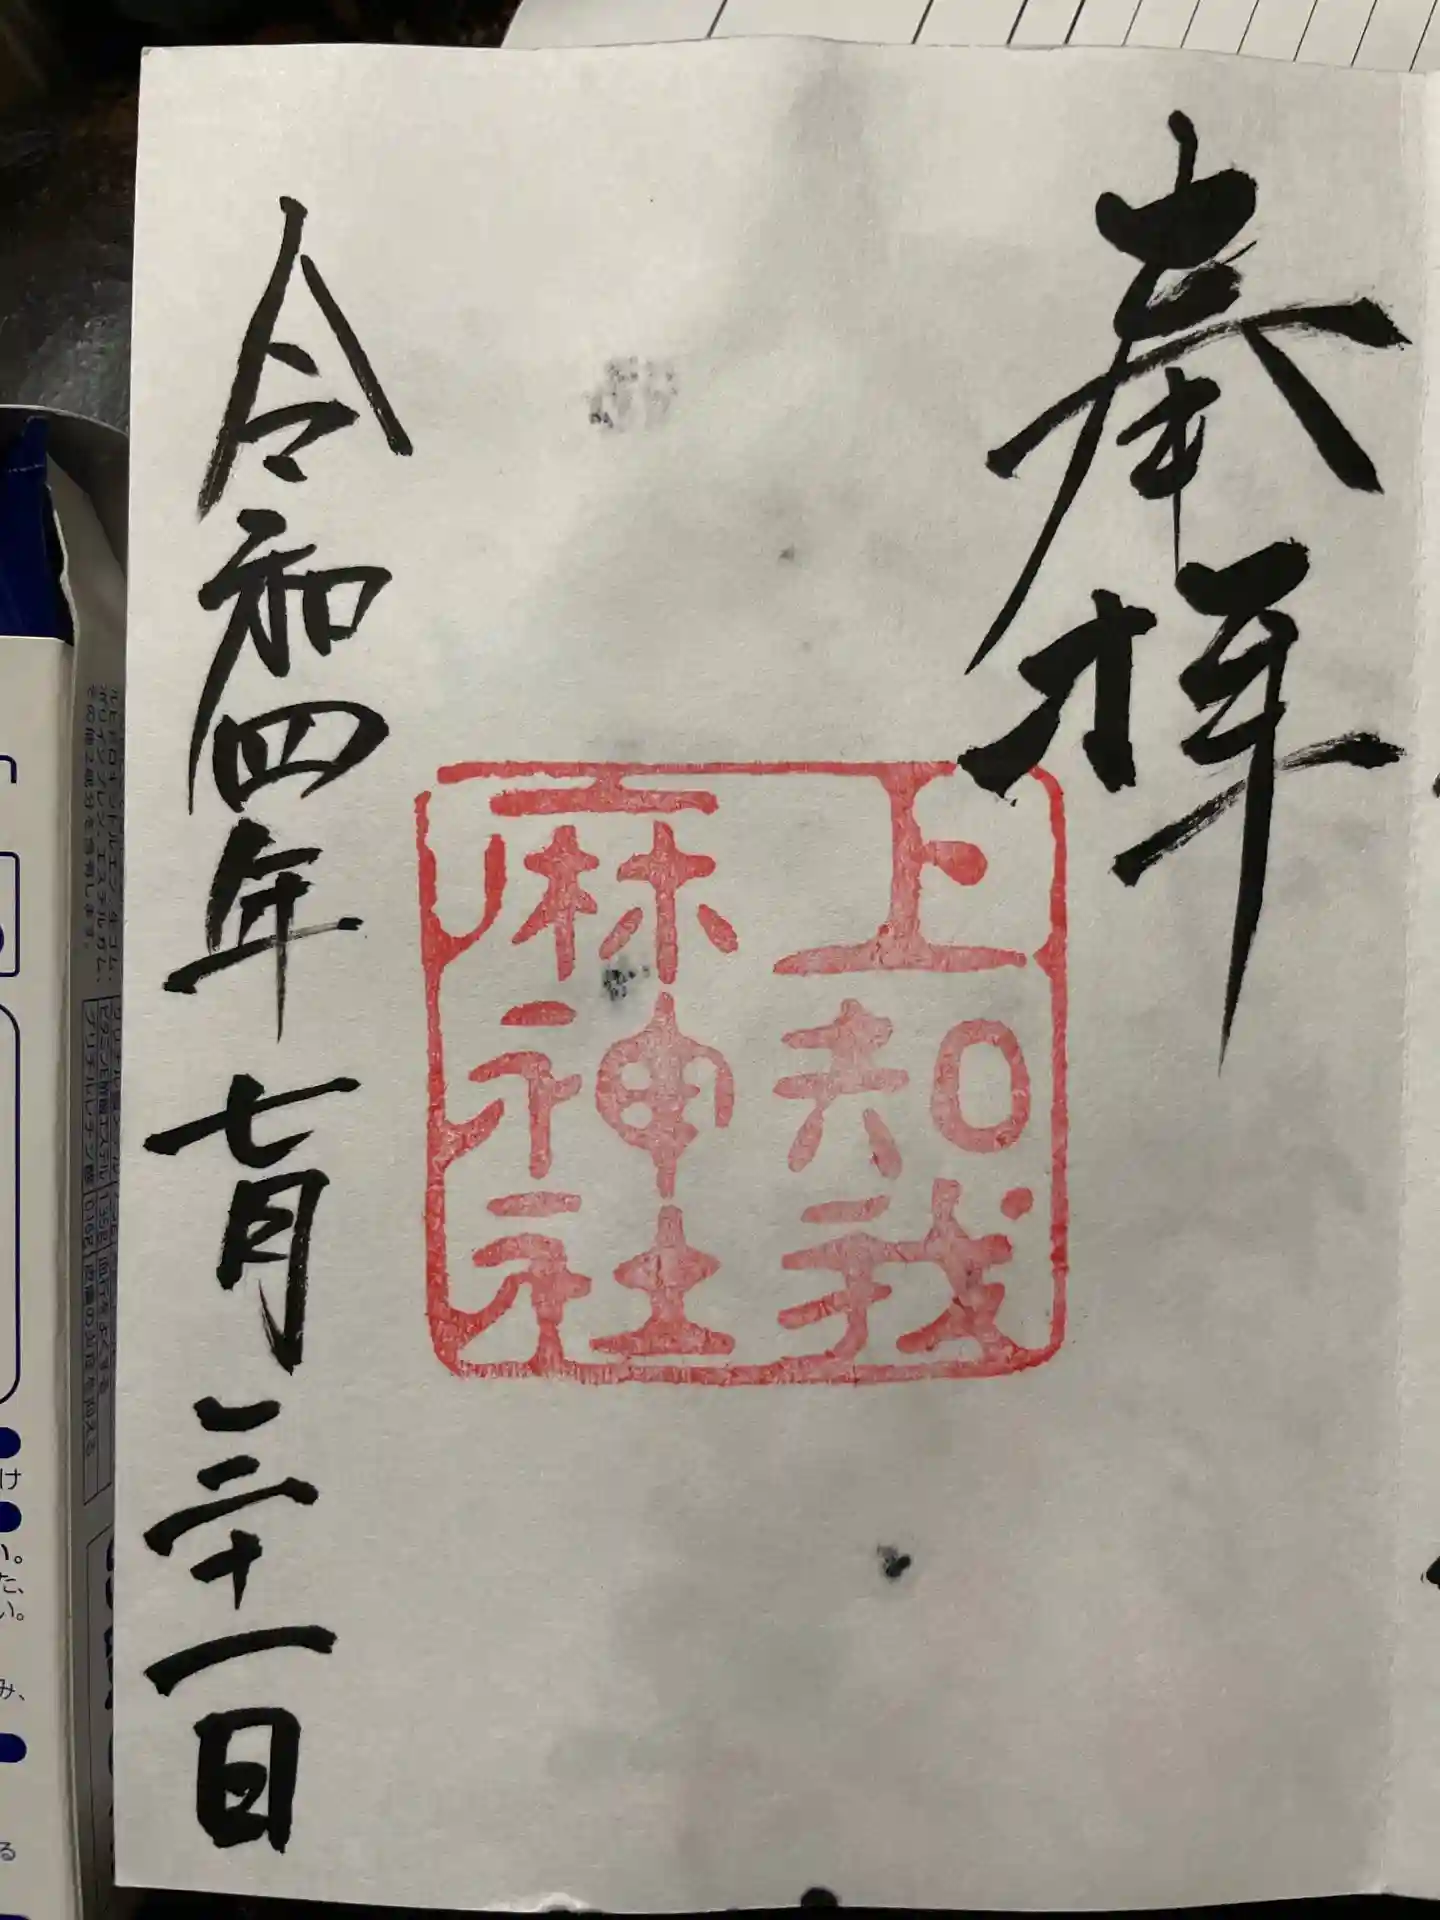 奉拝
上知我
麻神社
令和四年七月三十一日